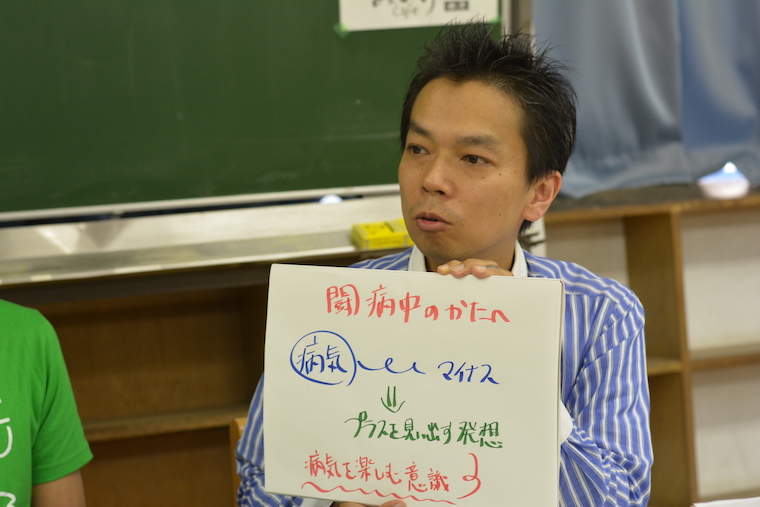 闘病中のかたへ
病気 マイナス
⇓
プラスを見い出す発想
病気を楽しむ意識